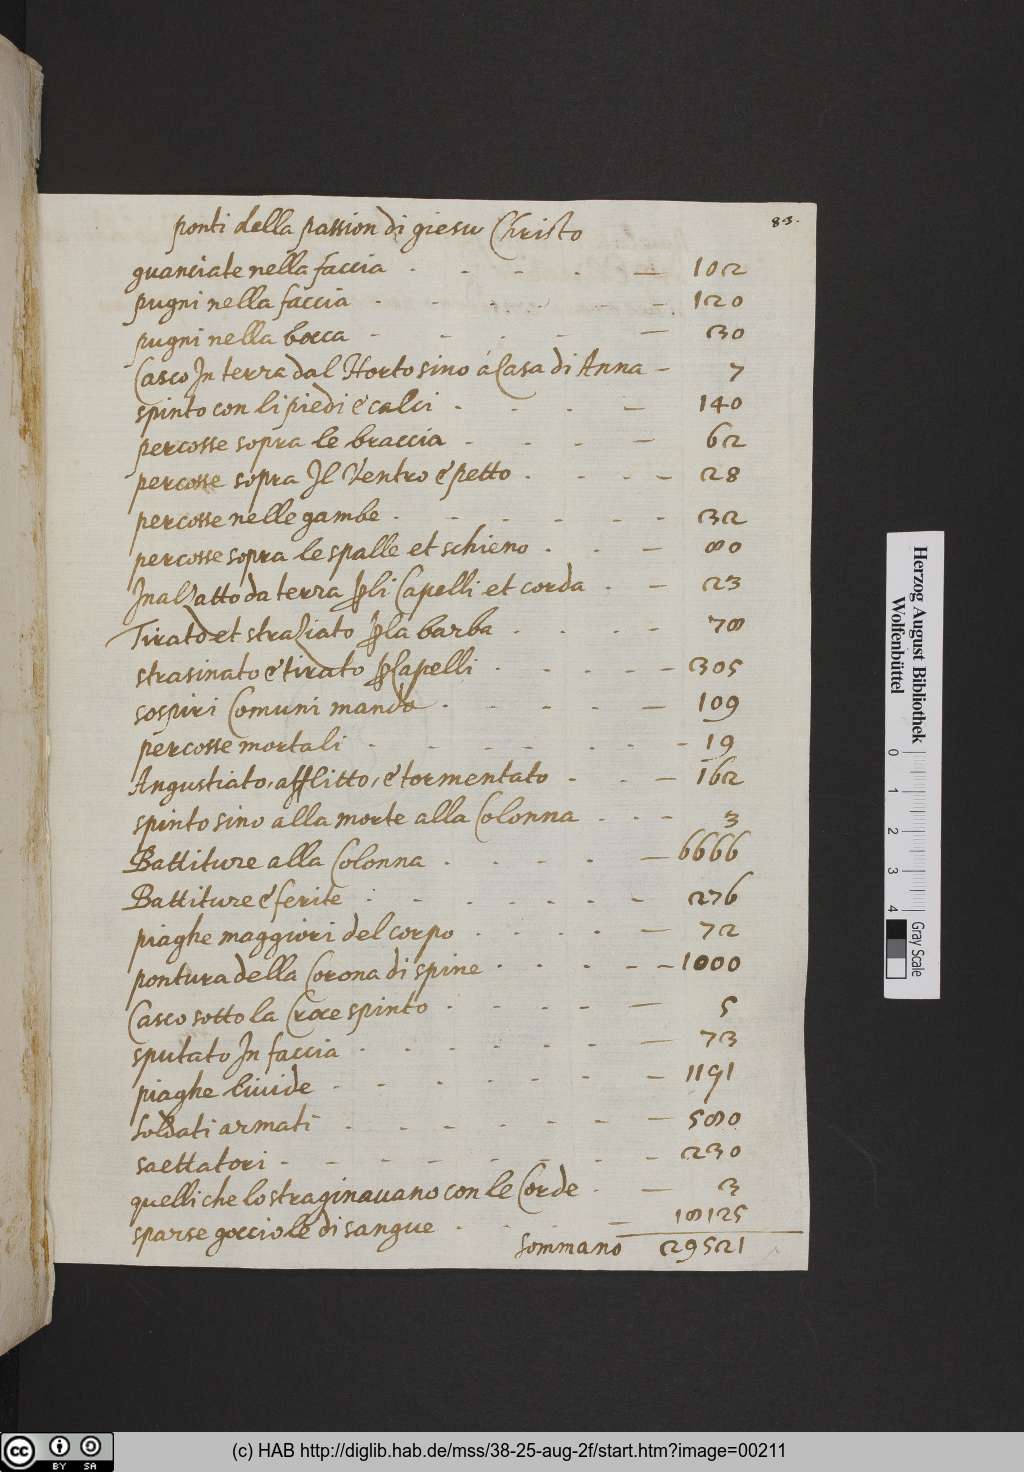 83.
ponti della passion di giesu Christo
guanciate nella faccia . - - . — 102
pugni nella faccia - - - . - — 120
pugni nella bocca - - . - — 30
Casco In terra dal Horto sino á Casa di Anna — 7
spinto con li piedi é calci . - . - — 140
percosse sopra le braccia - - - - — 62
percosse sopra Il Ventro é petto . - - - — 28
percosse nelle gambe . - - - - - 32
percosse sopra le spalle et schieno . - — 80
Inalzatto da terra ꝑ li Capelli et corda . — 23
Tirato et straziato ꝑ la barba . - - - 78
strasinato é tirato ꝑ Capelli - - - - — 305
sospiri Comuni mando . - - - - — 109
percosse mortali - - - - - - - 19
Angustiato, afflitto, é tormentato - - — 162
spinto sino alla morte alla Colonna . - - 3
Battiture alla Colonna . - - . — 6666
Battiture é ferite - - - - - - - 276
piaghe maggiori del corpo - - - . — 72
pontura della Corona di spine - - - - — 1000
Casco sotto la Croce spinto - - - - — 5
sputato In faccia - - - - - - — 73
piaghe liuide - - - - - - — 1191
soldati armati - - - - - - — 580
saettatori - - - - - - - - 230
quelli che lo straginauano con le Corde . — 3
sparse gocciole di sangue - - - — 18125
sommano 29521
Herzog August Bibliothek
Wolfenbüttel
0 1 2 3 4
Gray Scale
cc BY SA
(c) HAB http://diglib.hab.de/mss/38-25-aug-2f/start.htm?image=00211